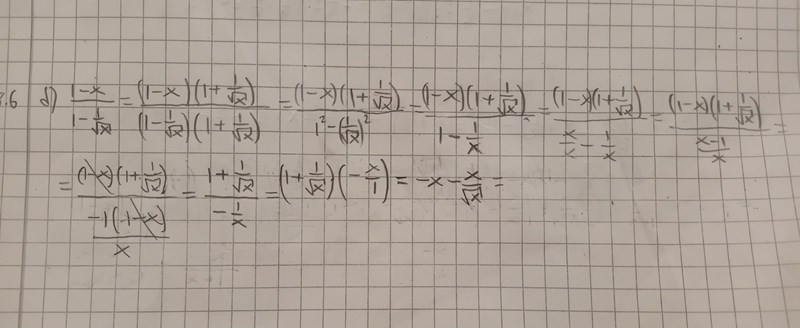 .6 δ) (1-x)/(1-1/√x) = ((1-x)(1+1/√x))/((1-1/√x)(1+1/√x)) = ((1-x)(1+1/√x))/(1²-(1/√x)²) = ((1-x)(1+1/√x))/(1-1/x) = ((1-x)(1+1/√x))/(x/x-1/x) = ((1-x)(1+1/√x))/((x-1)/x) =
= ((1-x)(1+1/√x))/((-1(-1-x))/x) = (1+1/√x)/(-1/x) = (1+1/√x)(-x/1) = -x-x/√x =